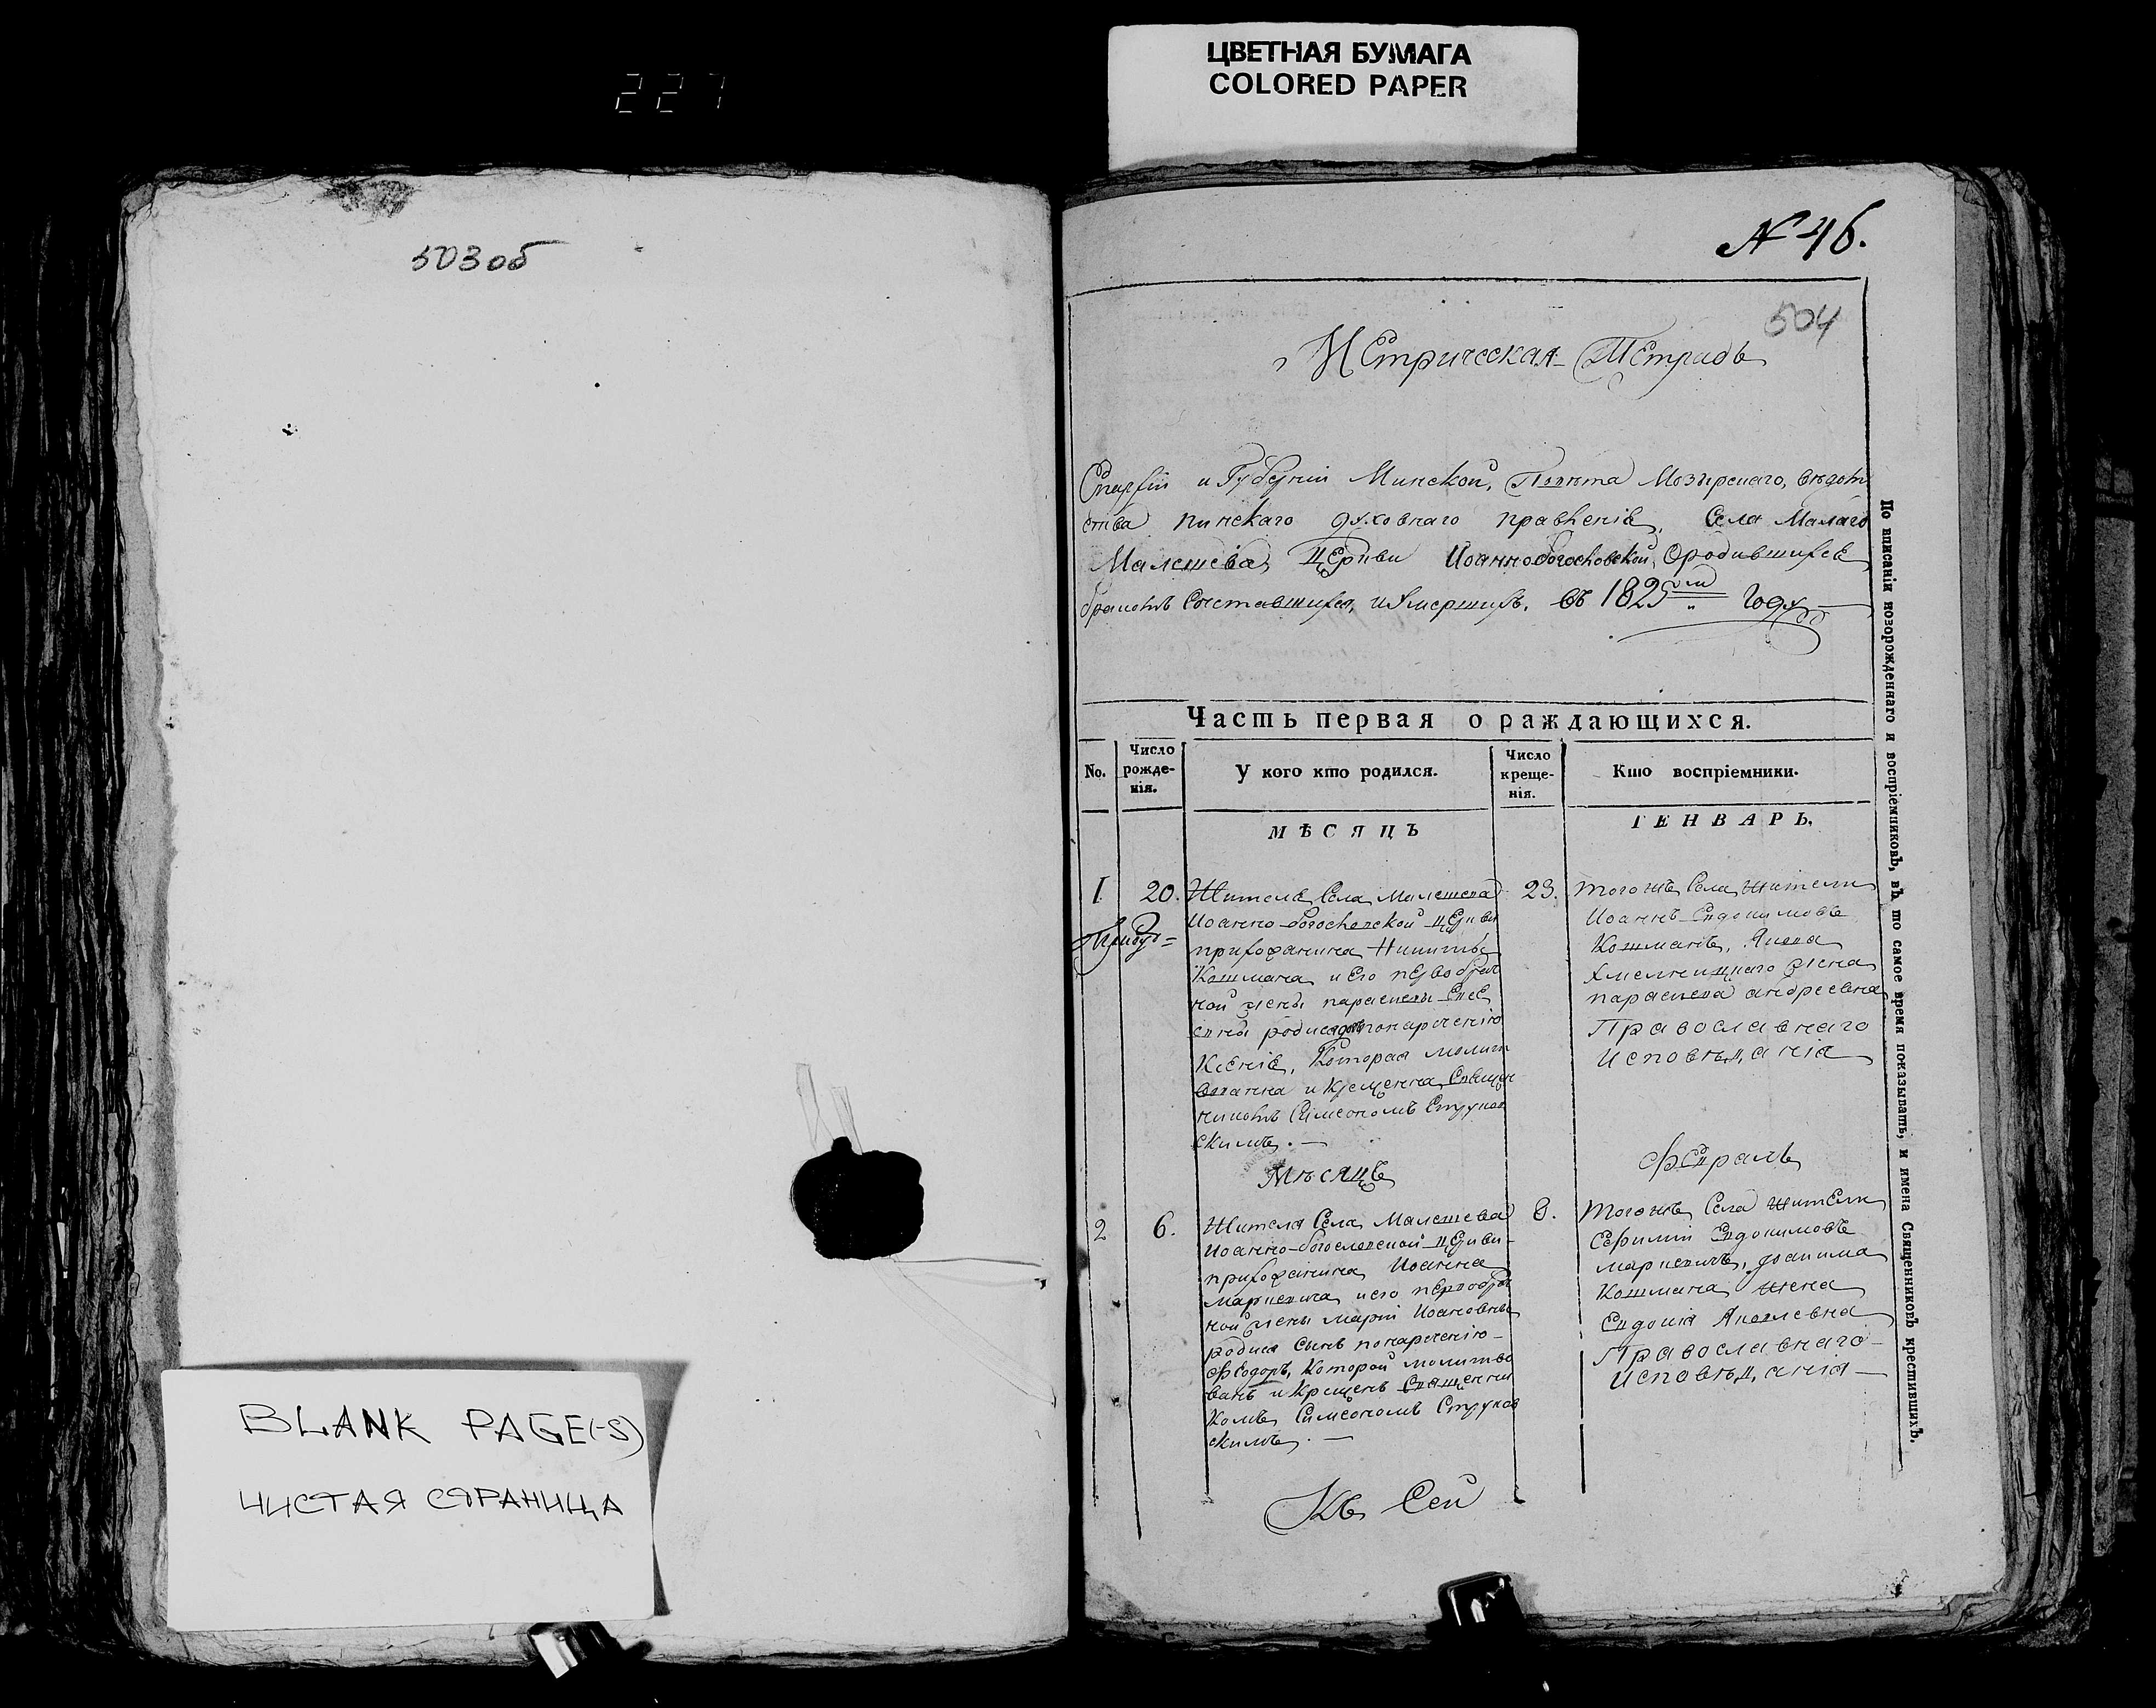 ЦВЕТНАЯ БУМАГА
COLORED PAPER
227
503 об
BLANK PAGE(-S)
ЧИСТАЯ СТРАНИЦА
N 46.
504
Метрическая Тетрадь
Епархіи и Губерніи Минской, Повѣта Мозырскаго, вѣдом
ства пинскаго духовнаго правленія, Села Малаго
Малешева, Церкви Иоаннобогословской, Ородившихся
бракомъ Сочетавшихся, иУмершихъ, въ 1825 году
Часть первая о раждающихся.
No.
Число рожде-нія.
У кого кто родился.
Число креще-нія.
Кто воспріемники.
МѢСЯЦЪ
ГЕНВАРЬ.
1
20.
Жителя Села Малешева
Иоанно-богословской Церкви
прихожанина Никиты
Кошмана и Его первобрач
ной жены параскевы
родися дочь понареченію
Ксенія, Которая молит
вованна и Крещенна Священ
никомъ Симеономъ Струков
скимъ. —
23.
тогожъ Села жители
Иоаннъ Евдокимовъ
Кошманъ, Якова
Хмелницкаго жена
параскева андреевна
Православнаго
исповѣданія
Мѣсяцъ
Февраль
2
6.
Жителя Села Малешева
Иоанно-богословской Церкви
прихожанина Иоанна
Маркевича и его первобрач
ной жены Маріи Иоановны
родися сынъ понареченію
Феодоръ, Которой молитво
ванъ и Крещенъ Священни
комъ Симеономъ Струков
скимъ. —
8.
Тогожъ Села жители
Ефимій Евдокимовъ
маркевичъ, Иоакима
Кошмана жена
Евдокія Яковлевна
Православнаго
исповѣданія
Къ Сей
По вписаніи новорожденнаго и воспріемниковъ, въ то самое время показывать, и имена Священниковъ крестившихъ.